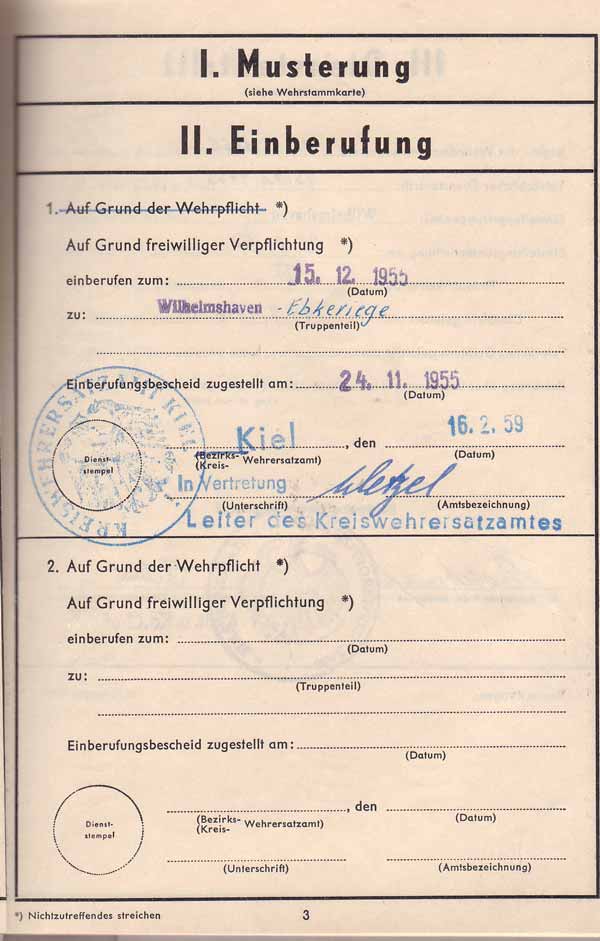 I. Musterung
(siehe Wehrstammkarte)
II. Einberufung
1. Auf Grund der Wehrpflicht *)
Auf Grund freiwilliger Verpflichtung *)
einberufen zum: 15. 12. 1955
(Datum)
zu: Wilhelmshaven - Ebkeriege
(Truppenteil)
Einberufungsbescheid zugestellt am: 24. 11. 1955
(Datum)
KREISWEHRERSATZAMT KIEL
Dienst-
stempel
Kiel, den 16. 2. 59
(Bezirks-
(Kreis- Wehrersatzamt)
(Datum)
In Vertretung
(Unterschrift) (Amtsbezeichnung)
Leiter des Kreiswehrersatzamtes
2. Auf Grund der Wehrpflicht *)
Auf Grund freiwilliger Verpflichtung *)
einberufen zum:
(Datum)
zu:
(Truppenteil)
Einberufungsbescheid zugestellt am:
(Datum)
Dienst-
stempel
, den
(Bezirks-
(Kreis- Wehrersatzamt)
(Datum)
(Unterschrift) (Amtsbezeichnung)
*) Nichtzutreffendes streichen
3